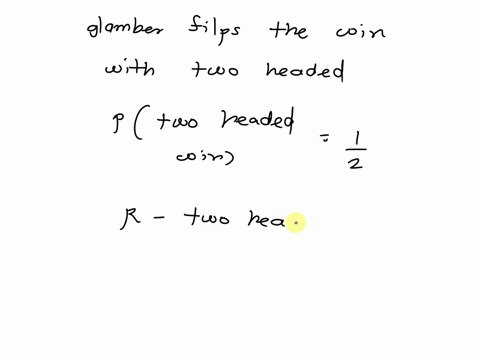 glamber filps the coin
with two headed
P ( two headed
coin) = 1/2
R - two hea